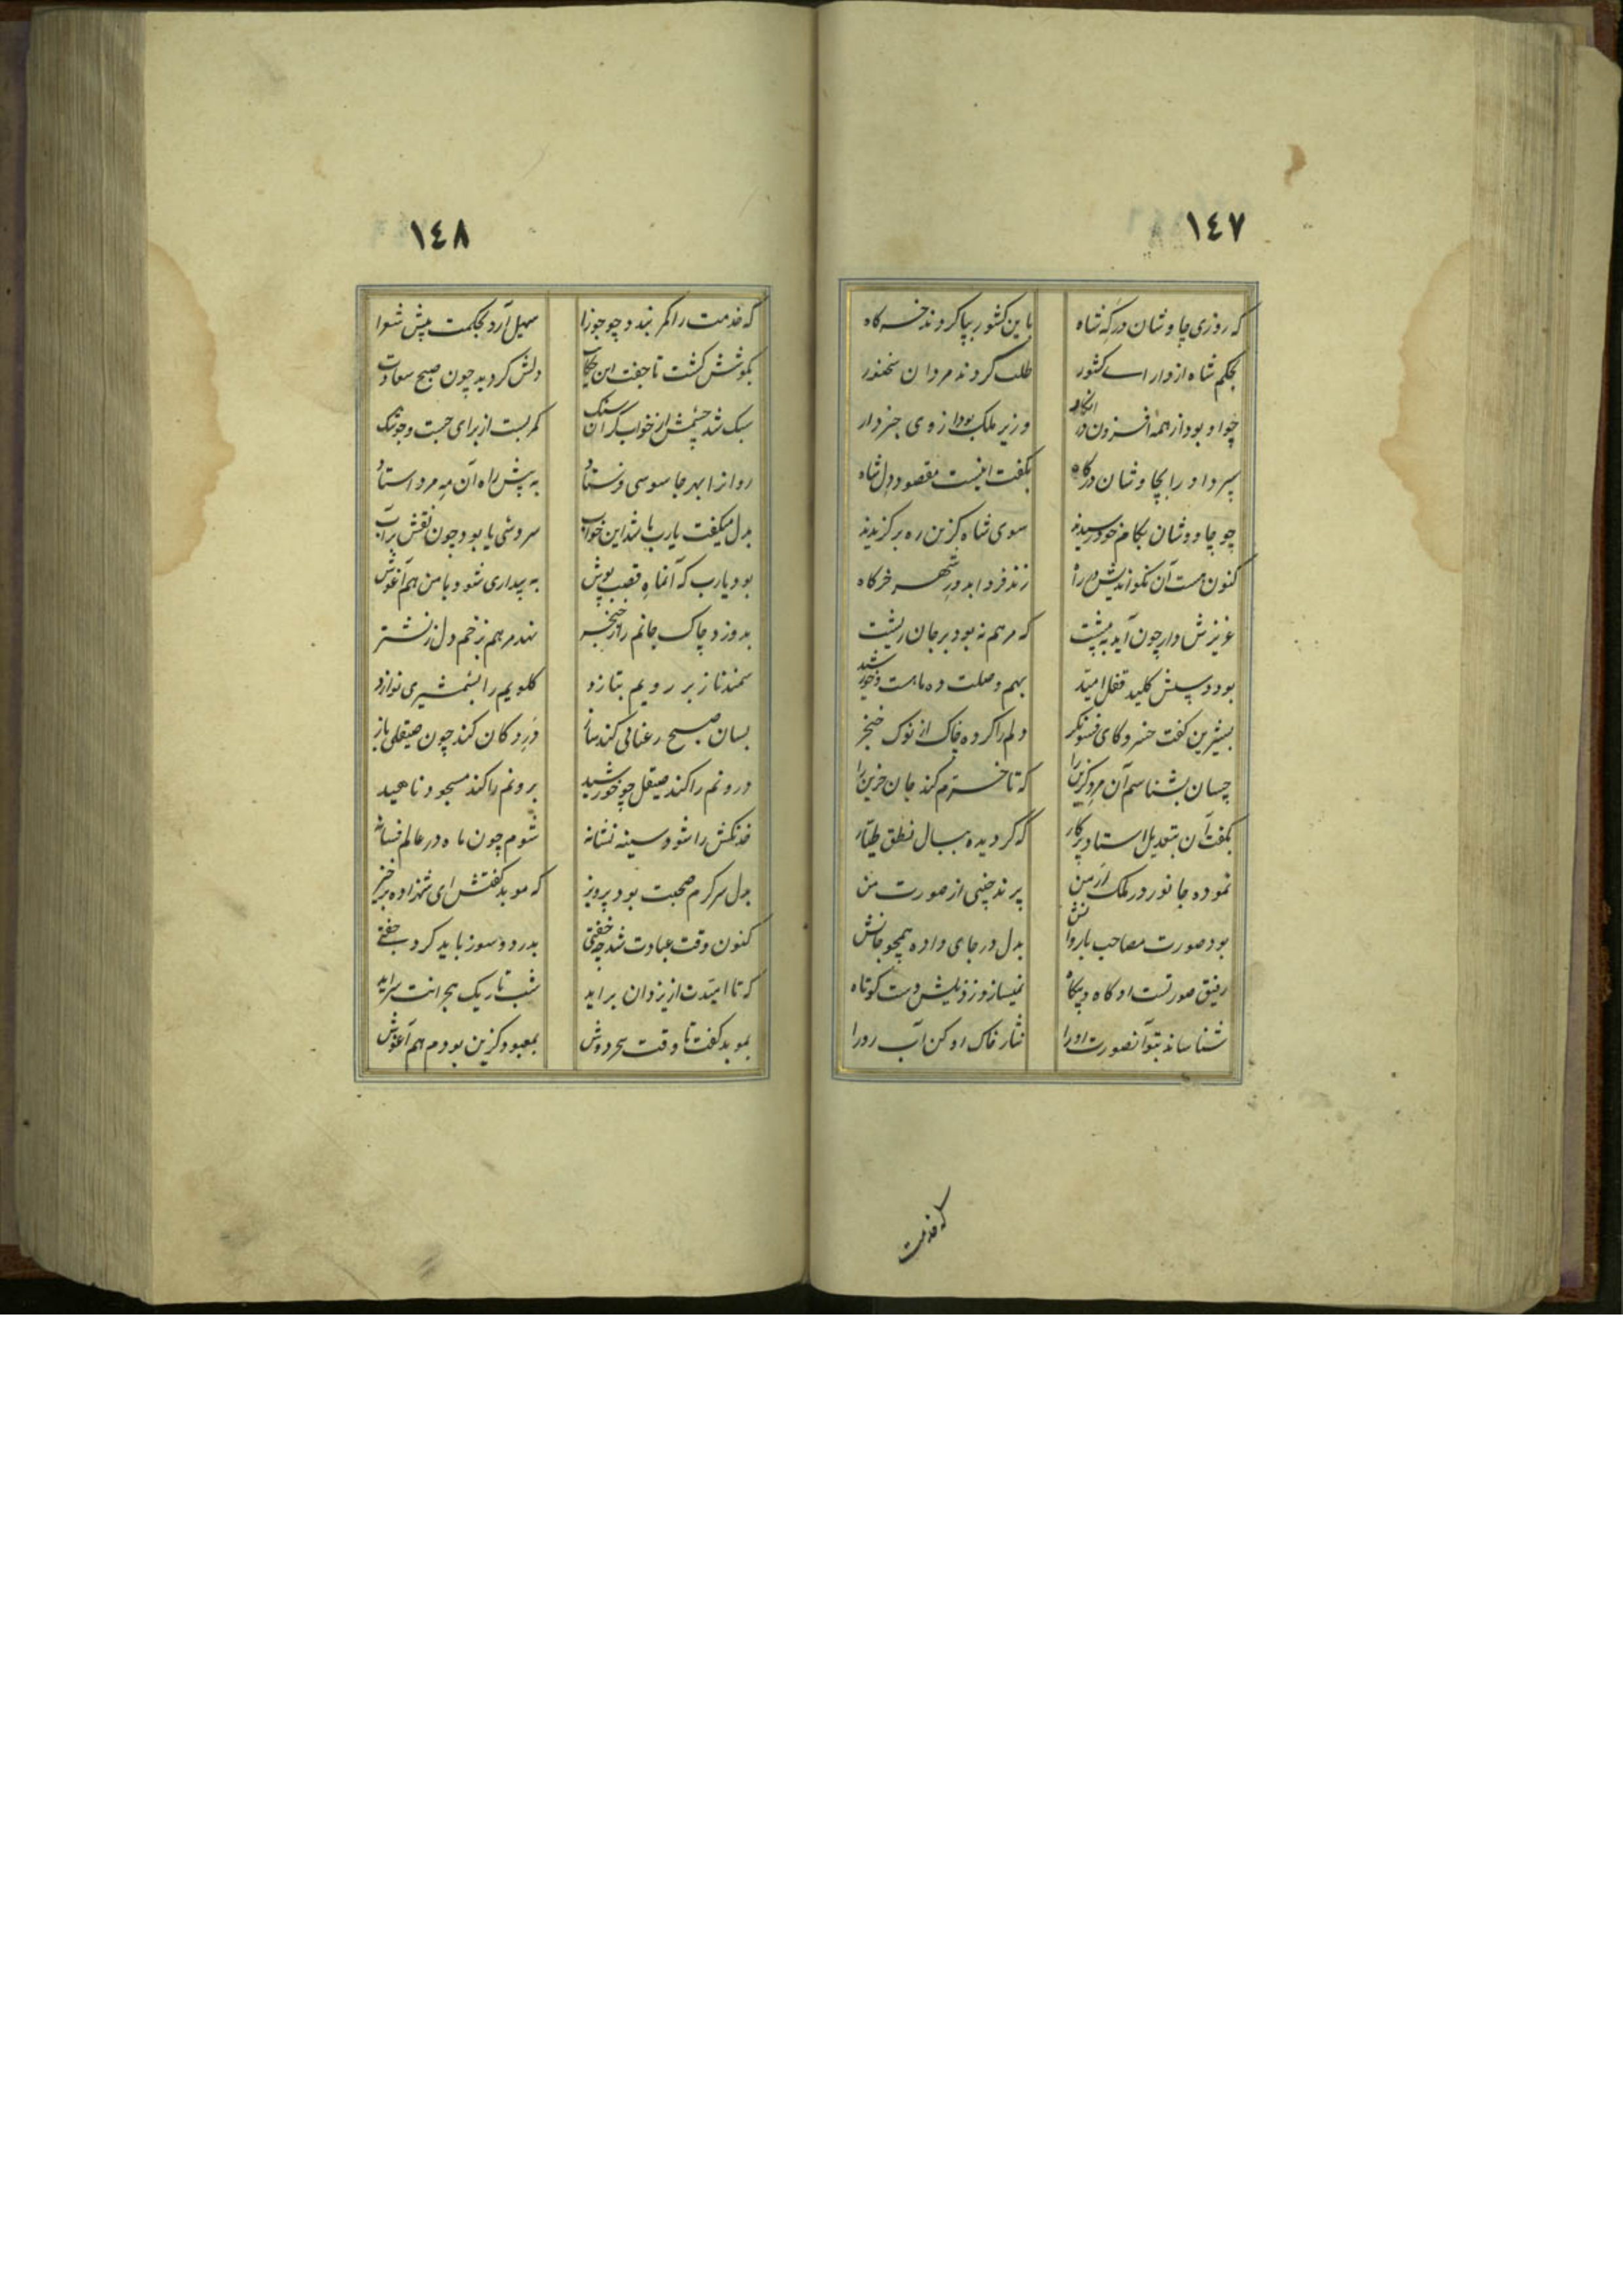 ١٤٧
که روزی چاوشان درکه شاه باین کشور بپا کردند خرکاه
بحکم شاه از دارای کشور طلب کردند مردان سخنور
چو او بود از همه افزون در وزیر ملک بود از وی خبردار
سپرد او را بچاوشان درکاه بگفت اینست مقصود دل شاه
چو چاووشان بکام خود رسیدند سوی شاه گزین ره برگزیدند
کنون هست آن نکو اندیش در راه زند فردا بدور شهر خرکاه
عزیزش دار چون آید به پیشت که مرهم نه بود بر جان ریشت
بود وسیلش کلید قفل امید بهم وصلت ده ماهست و خورشید
بشیرین گفت خسرو کای فسونگر دلم را کرده چاک از نوک خنجر
چسان بشناسم آن مرد گزین را که تا خرم کند جان حزین را
بگفت آن بتعدیل استاد پرکار که گردیده ببال نطق طیار
نموده جانور در ملک ارمن پرند چینی از صورت من
بود صورت مصاحب با روانش بدل در جای داده همچو جانش
رفیق صورتست او گاه و بیگاه نمیسازد ز ذیلش دست کوتاه
شناساند بتو آنصورت او را نثار خاک او کن آب رو را
که خدمت
١٤٨
که خدمت را کمر بندد چو جوزا سهیل آرد بحکمت پیش شعرا
بگوشش گشت تا جفت این حکایت دلش گردید چون صبح سعادت
سبک شد چشمش از خواب گران سنگ کمر بست از برای جست و جو تنگ
روانرا بهر جاسوسی فرستاد به پیش راه آن مه مرد استاد
بدل میگفت یارب باشد این خواب سروشی یا بود چون نقش بر آب
بود یارب که آنماه قصب پوش به بیداری شود با من هم آغوش
بدوزد چاک جانم را ز خنجر نهد مرهم بزخم دل ز نشتر
سمند ناز بر رویم بتازد گلویم را بشمشیری نوازد
بسان صبح رعنائی کند ساز در دکان کند چون صیقلی باز
درونم را کند صیقل چو خورشید برونم را کند مسجود ناهید
خدنگش را شود سینه نشانه شوم چون ماه در عالم فسانه
بدل سرگرم صحبت بود پرویز که موبد گفتش ای شهزاده برخیز
کنون وقت عبادت شد چه خفتی بدرد و سوز باید کرد جفتی
که تا امیدت از یزدان براید شب تاریک هجرانت سراید
بموبد گفت تا وقت سحر دوش بمعبود گزین بودم هم آغوش